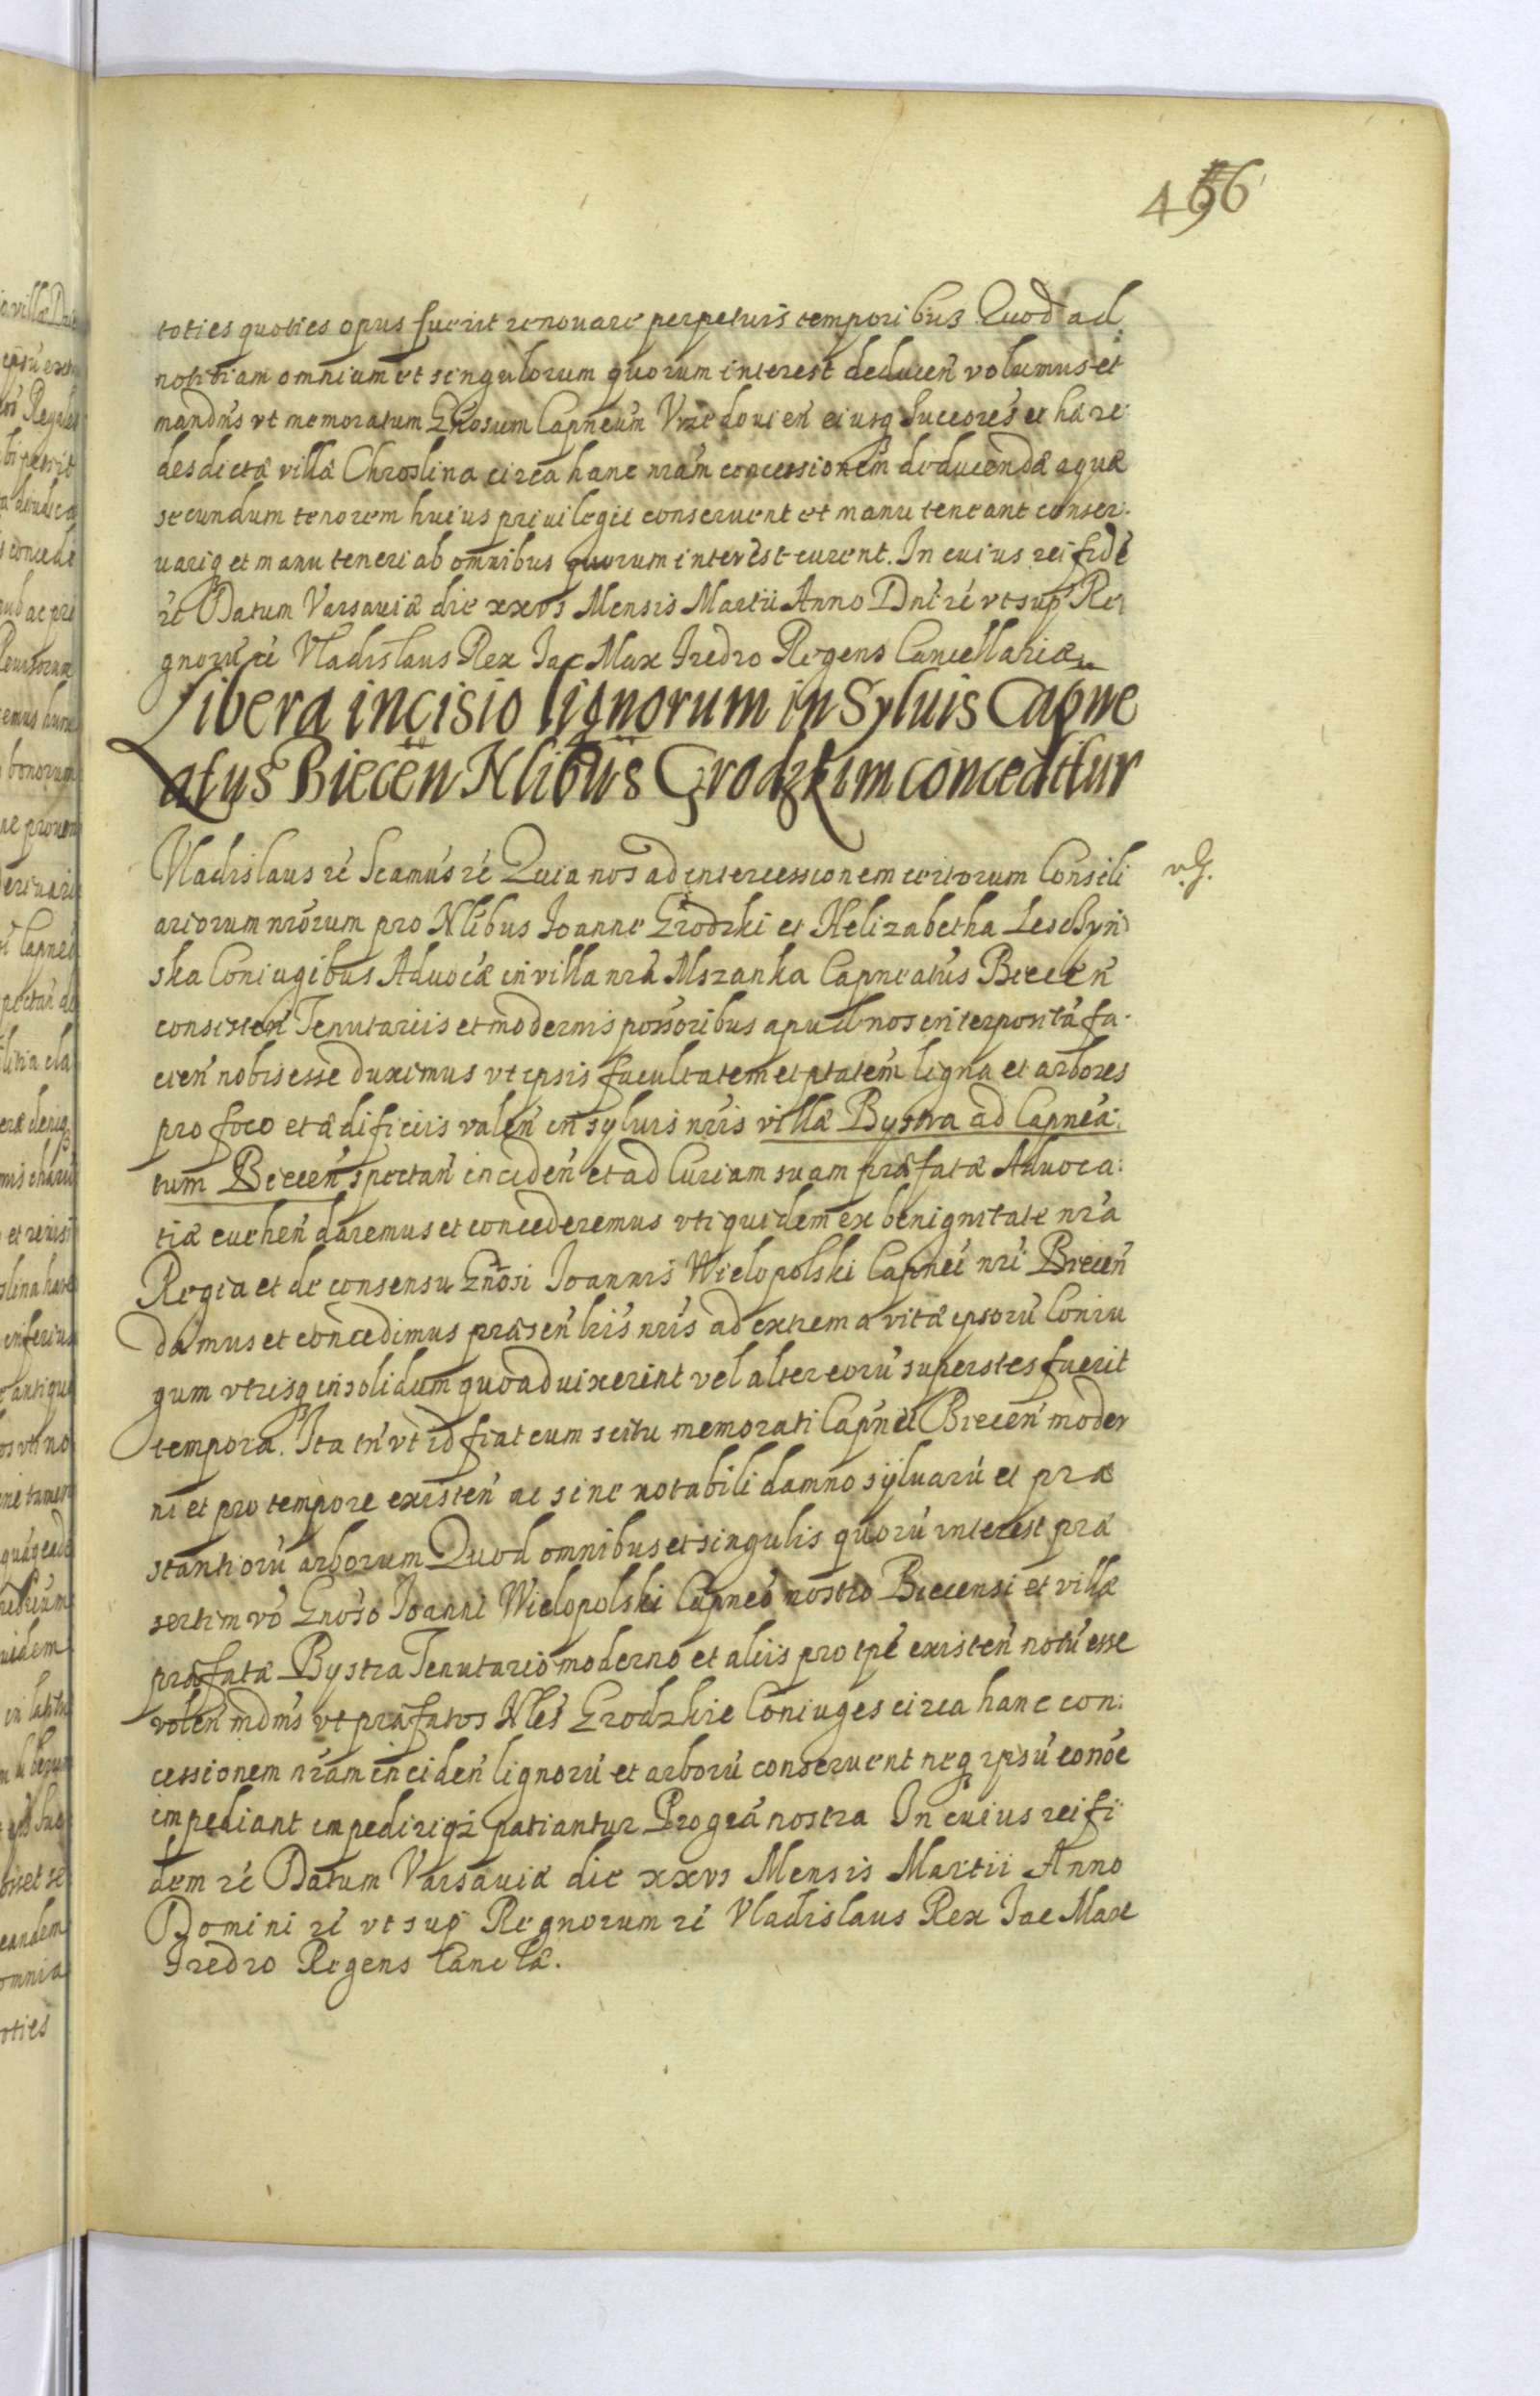 456
toties quoties opus fuerit renouare perpetuis temporibus Quod ad
notitiam omnium et singulorum quorum interest deducen̄ volumus et
mandm̄s vt memoratum Gnosum Capneum Vrzedouien̄ eiusq Succores et hære
des dictæ villæ Chroslina circa hanc nrām concessionem diducendæ aquæ
secundum tenorem huius priuilegii conseruent et manu teneant conser:
uariq et manu teneri ab omnibus quorum interest curent. In cuius rei fidē
rē Datum Varsauiæ die xxvs Mensis Martii Anno Dni rē vt sup Re
gnorū rē Vladislaus Rex Jac Max Fredro Regens Cancellariæ
Libera incisio lignorum in Syluis Capne
atus Biecen Nlibus Grodzkim conceditur
Vladislaus rē Scamus rē Quia nos ad intercessionem certorum Consili
v. G.
ariorum nrorum pro Nlibus Joanne Grodzki et Helizabetha Leschyn
ska Coniugibus Aduocæ in villa nrā Mszanka Capneatus Biecen̄
consisten̄ Tenutariis et modernis possoribus apud nos interposità fa-
cien̄ nobis esse duximus vt ipsis facultatem et ptatem ligna et arbores
pro foco et ædificiis valen̄ in syluis nris villæ Bystra ad Capnea:
tum Biecen̄ spectan̄ inciden̄ et ad Curiam suam præfatæ Aduoca:
tiæ euehen̄ daremus et concederemus vti quidem ex benignitate nrā
Regia et de consensu Gnosi Joannis Wielopolski Capnei nri Biecen̄
damus et concedimus præsen̄ lris nris ad extrema vitæ ipsorū Coniu
gum vtrisq in solidum quoad vixerint vel alter eorū superstes fuerit
tempora. Ita tn̄ vt id fiat cum scitu memorati Capnei Biecen̄ moder
ni et pro tempore existen̄ ac sine notabili damno syluarū et præ
stantiorū arborum Quod omnibus et singulis quorū interest præ
sertim vō Gnoso Joanni Wielopolski Capneo nostro Biecensi et villæ
præfatæ Bystra Tenutario moderno et aliis pro tpe existen̄ notū esse
volen̄ mdm̄s vt præfatos Nles Grodzkie Coniuges circa hanc con:
cessionem nrām inciden̄ lignorū et arborū conseruent neq ipsū eonoe
impediant impediriqz patiantur Pro grā nostra In cuius rei fi
dem rē Datum Varsauiæ die xxvs Mensis Martii Anno
Domini rē vt sup Regnorum rē Vladislaus Rex Jac Max
Fredro Regens Canclæ.